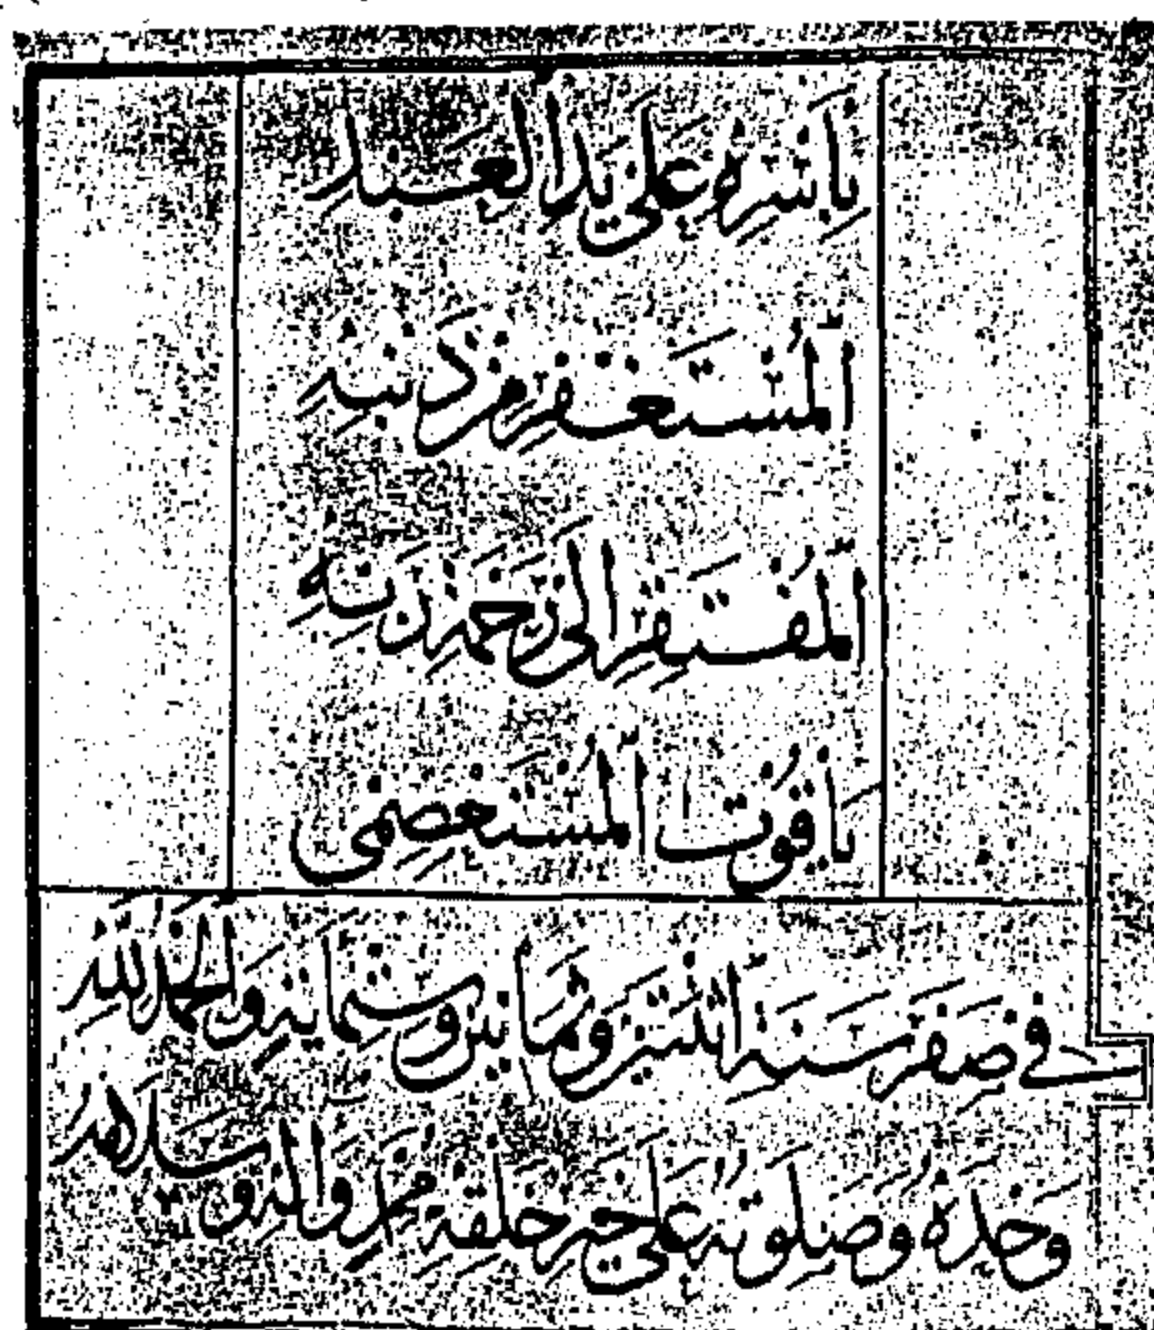 بأسره على يد العبد
المستغفر من ذنبه
المفتقر إلى رحمة ربه
ياقوت المستعصمى
فى صفر سنة اثنتين وثمانين وستمائة والحمد لله
وحده وصلوته على خير خلقه محمد واله وسلامه